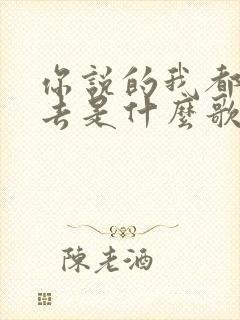 你說的我都
去是什麼歌
陳老酒